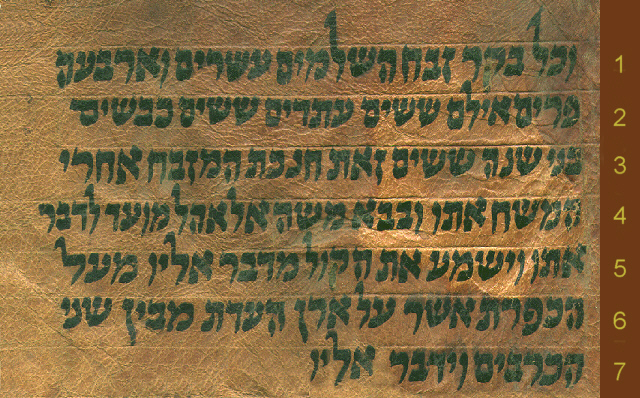 1 וכל בקר זבח השלמים עשרים וארבעה
2 פרים אילם ששים עתדים ששים כבשים
3 בני שנה ששים זאת חנכת המזבח אחרי
4 המשח אתו ובבא משה אל אהל מועד לדבר
5 אתו וישמע את הקול מדבר אליו מעל
6 הכפרת אשר על ארן העדת מבין שני
7 הכרבים וידבר אליו